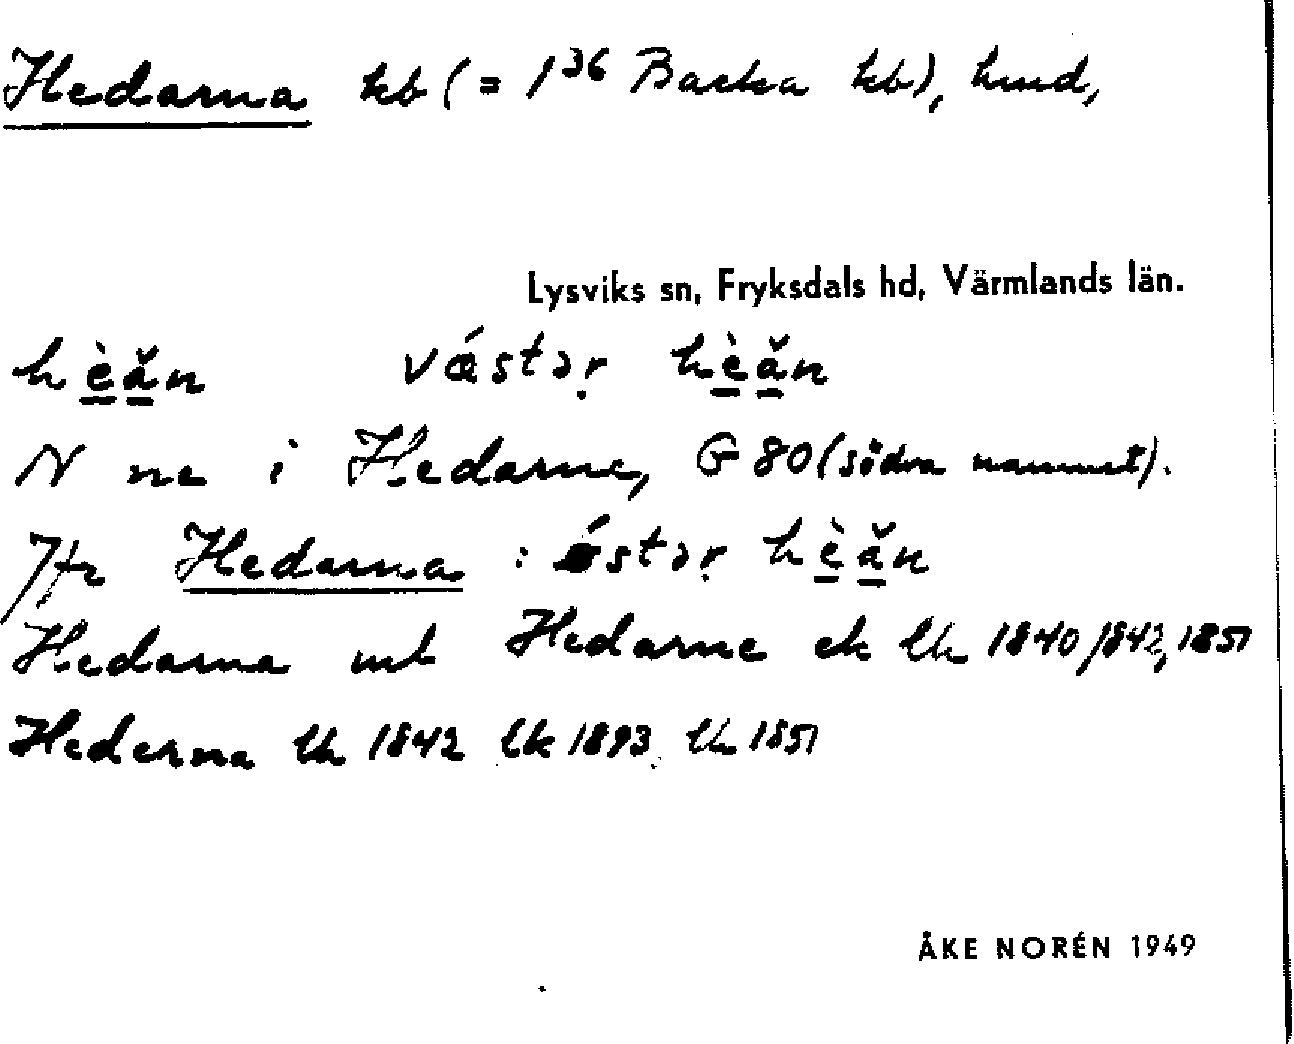 Hedarna kb (= 1³⁶ Backa kb), hmd,
Lysviks sn, Fryksdals hd, Värmlands län.
hè̱ă̱n västər̥ hè̱ă̱n
N ne i Hedarne, G 80 (södra namnet).
Jfr Hedarna : östər̥ hè̱ă̱n
Hedarna Hedarne ek lk 1840/1842, 1851
Hederna lk 1842 lk 1893 lk 1851
ÅKE NORÉN 1949